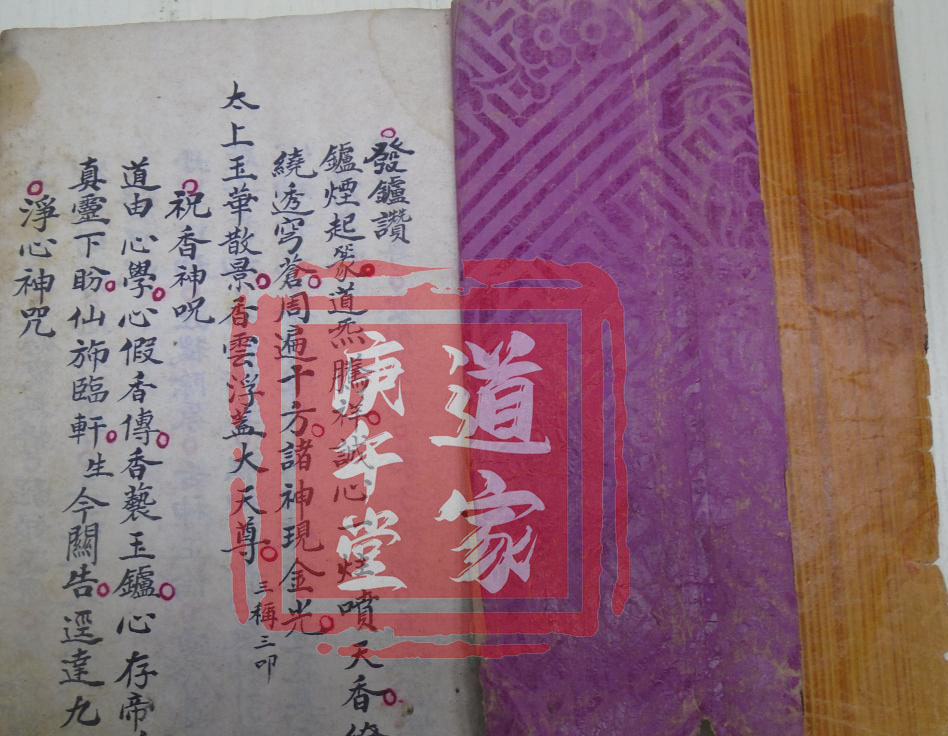 發鑪讚
鑪煙起篆道炁騰祥誠心一炷噴天香繚
繞透穹蒼周遍十方諸神現金光
太上玉華散景香雲浮蓋大天尊三稱三叩
祝香神呪
道由心學心假香傳香爇玉鑪心存帝
真靈下盼仙斾臨軒生今關告逕達九
淨心神咒
道家
庚午堂